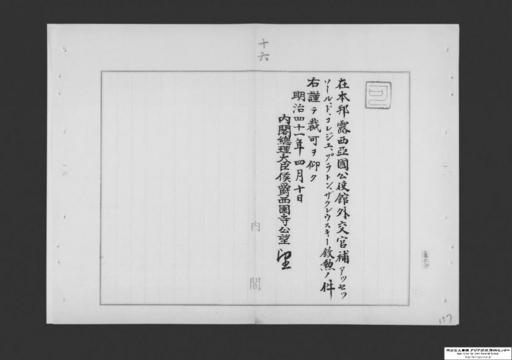 十六
在本邦露西亞國公使館外交官補アッセッ
ソール、ド、コレジエ、プラトン、ザクレウスキー敍勲ノ件
右謹テ裁可ヲ仰ク
明治四十一年四月十日
内閣總理大臣侯爵西園寺公望
内閣